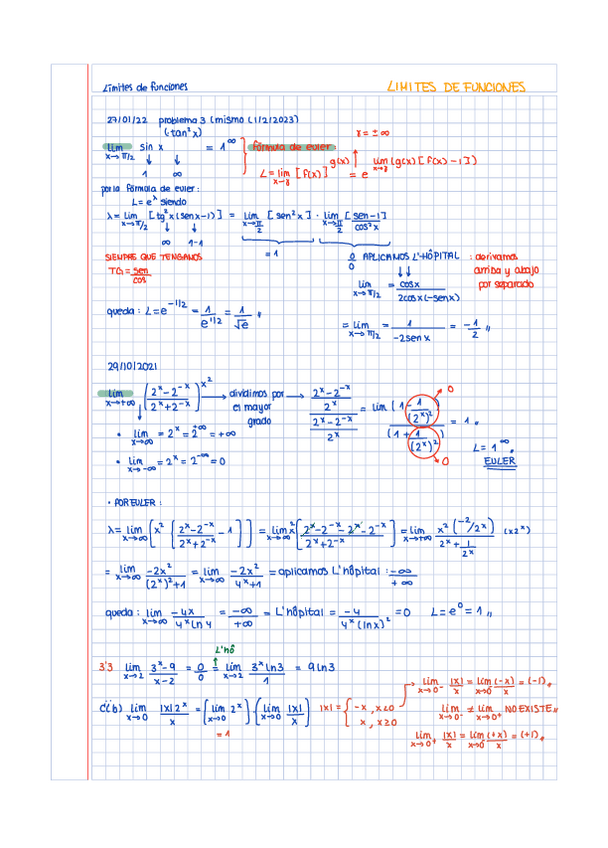 Límites de funciones
LIMITES DE FUNCIONES
27/01/22 problema 3 (mismo 11/2/2023)
lim x→π/2 sin x^(tan²x) = 1^∞
fórmula de euler:
γ = ±∞
L = lim x→γ [f(x)]^g(x) = e^lim x→γ (g(x)[f(x)-1])
1 ∞
por la fórmula de euler:
L = e^λ siendo
λ = lim x→π/2 [tg²x(senx-1)] = lim x→π/2 [sen²x] · lim x→π/2 [sen-1]/cos²x
∞ 1-1
= 1
SIEMPRE QUE TENGAMOS
TG = sen/cos
0/0 APLICAMOS L'HÔPITAL : derivamos
arriba y abajo
por separado
lim x→π/2 = cosx / 2cosx(-senx)
queda: L = e^-1/2 = 1/e^1/2 = 1/√e
= lim x→π/2 = 1/-2senx = -1/2
29/10/2021
lim x→+∞ (2^x-2^-x / 2^x+2^-x)^x² → dividimos por el mayor grado → (2^x-2^-x / 2^x) / (2^x-2^-x / 2^x) = lim (1 - 1/(2^x)²) / (1 + 1/(2^x)²) = 1
0
0
• lim x→∞ = 2^x = 2^+∞ = +∞
• lim x→-∞ = 2^x = 2^-∞ = 0
L = 1^∞
EULER
• POR EULER:
λ = lim x→∞ [x² [2^x-2^-x / 2^x+2^-x - 1]] = lim x→∞ x² [2^x-2^-x-2^x-2^-x / 2^x+2^-x] = lim x→+∞ x²(-2/2^x) / 2^x + 1/2^x (x2^x)
= lim x→∞ -2x²/(2^x)²+1 = lim x→∞ -2x²/4^x+1 = aplicamos L'hôpital: -∞/+∞
queda: lim x→∞ -4x/4^x ln4 = -∞/+∞ = L'hôpital = -4/4^x(lnx)² = 0 L = e^0 = 1
L'hô
3'3 lim x→2 3^x-9/x-2 = 0/0 = lim x→2 3^x ln3/1 = 9ln3
lim x→0⁻ |x|/x = lim x→0⁻ (-x)/x = (-1)
b) lim x→0 |x|2^x/x = [lim x→0 2^x] · [lim x→0 |x|/x] |x| = { -x, x<0
x, x≥0
lim x→0⁻ ≠ lim x→0⁺ NO EXISTE
= 1
lim x→0⁺ |x|/x = lim x→0 (+x)/x = (+1)